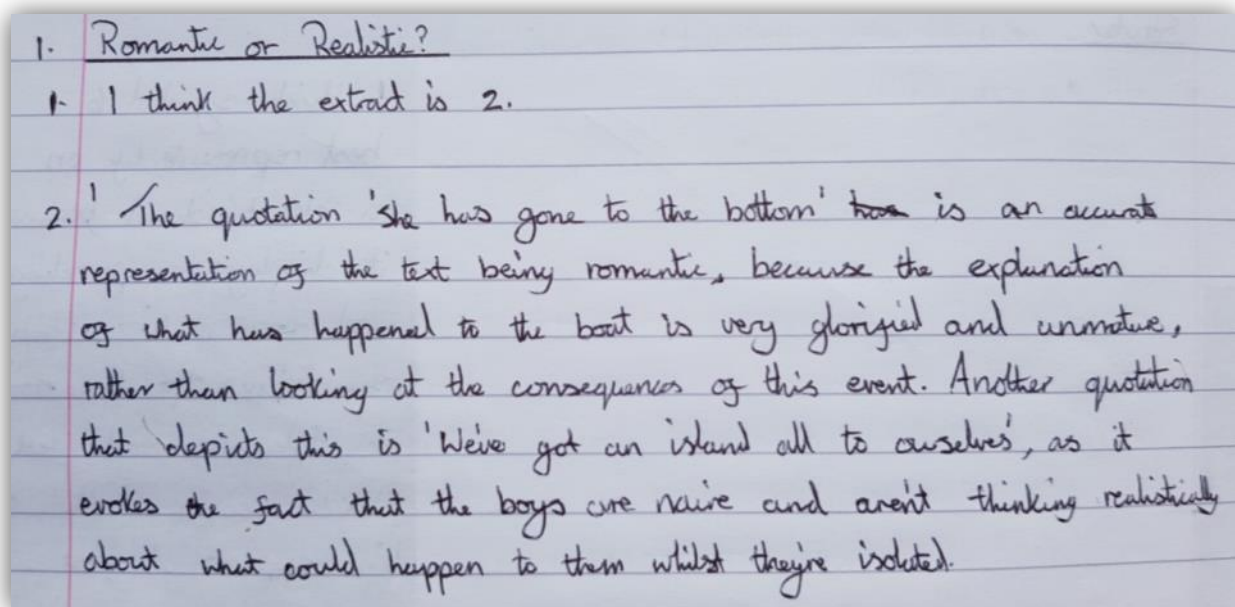 1. Romantic or Realistic?
1. I think the extract is 2.
2. ' The quotation 'she has gone to the bottom' is an accurate
representation of the text being romantic, because the explanation
of what has happened to the boat is very glorified and unmature,
rather than looking at the consequences of this event. Another quotation
that depicts this is 'We've got an island all to ourselves', as it
evokes the fact that the boys are naive and aren't thinking realistically
about what could happen to them whilst they're isolated.